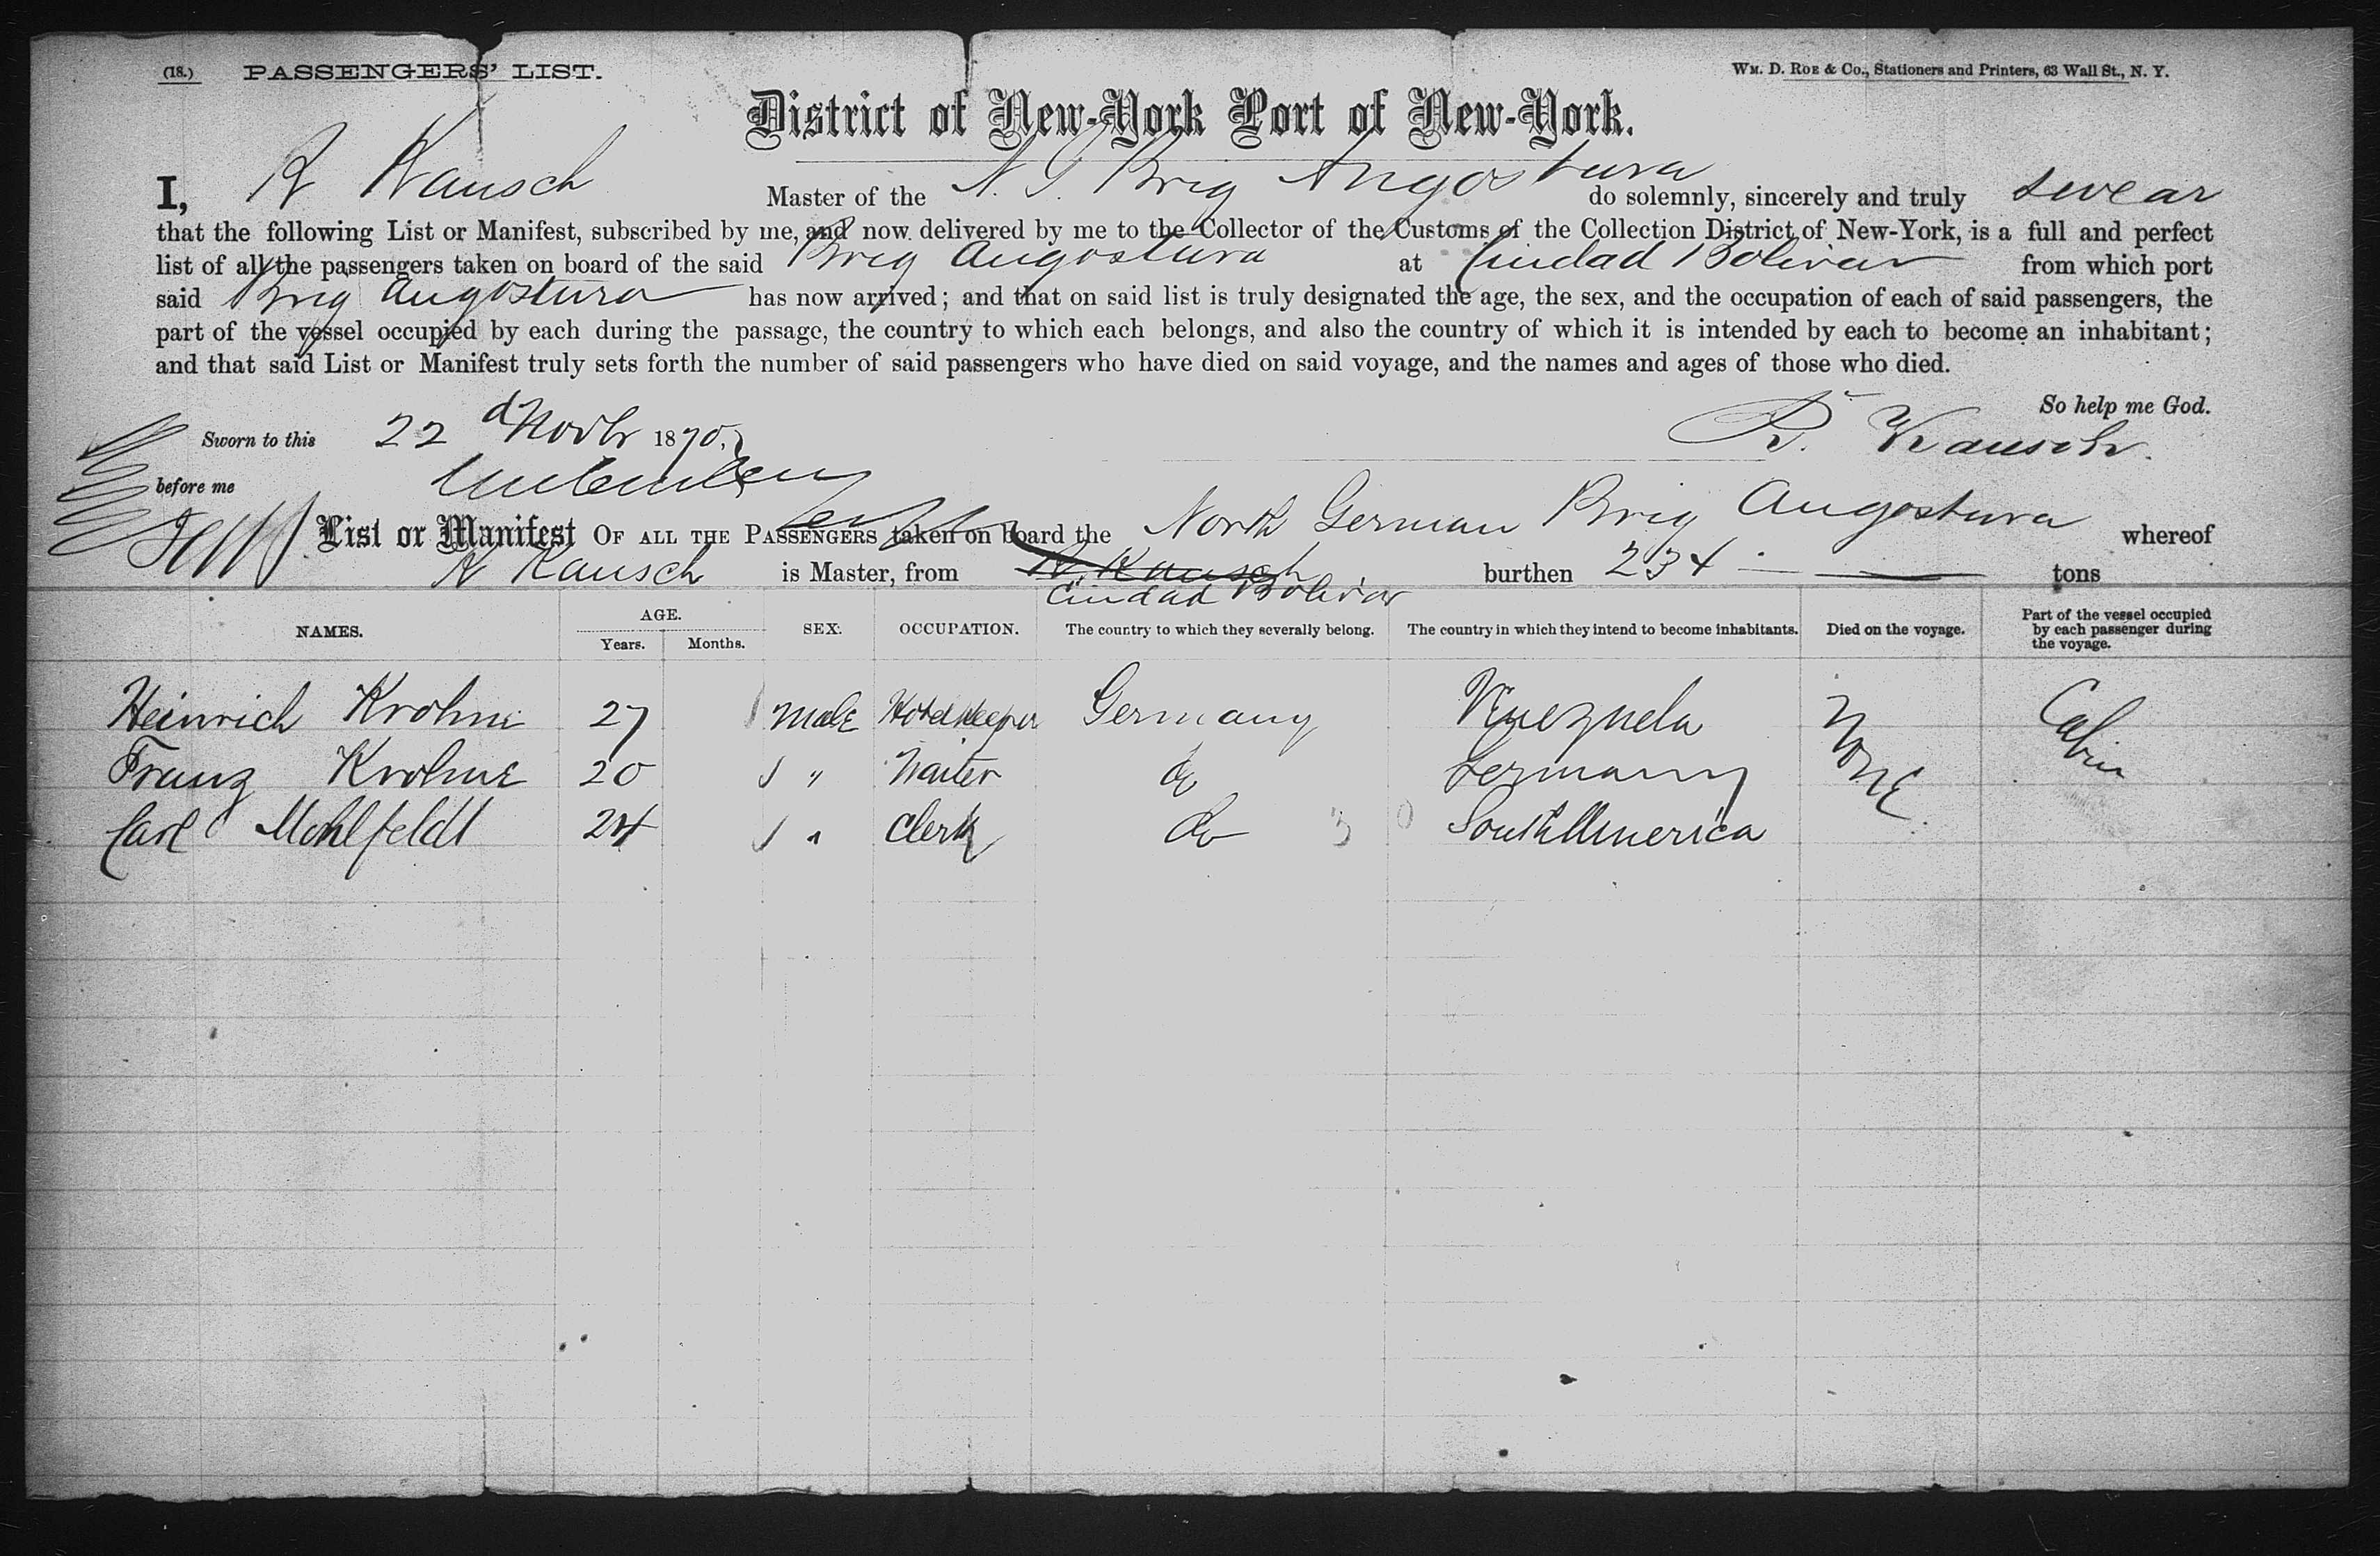 (18.) PASSENGERS' LIST.
WM. D. ROE & Co., Stationers and Printers, 63 Wall St., N. Y.
District of New-York Port of New-York.
I, R Kausch Master of the N. G. Brig Angostura do solemnly, sincerely and truly swear
that the following List or Manifest, subscribed by me, and now delivered by me to the Collector of the Customs of the Collection District of New-York, is a full and perfect
list of all the passengers taken on board of the said Brig Angostura at Ciudad Bolivar from which port
said Brig Angostura has now arrived; and that on said list is truly designated the age, the sex, and the occupation of each of said passengers, the
part of the vessel occupied by each during the passage, the country to which each belongs, and also the country of which it is intended by each to become an inhabitant;
and that said List or Manifest truly sets forth the number of said passengers who have died on said voyage, and the names and ages of those who died.
So help me God.
Sworn to this 22d Novbr 1870,
R. Kausch.
before me
List or Manifest OF ALL THE PASSENGERS taken on board the North German Brig Angostura whereof
R Kausch is Master, from R. Kausch burthen 234 tons
Ciudad Bolivar
NAMES. AGE. Years. Months. SEX. OCCUPATION. The country to which they severally belong. The country in which they intend to become inhabitants. Died on the voyage. Part of the vessel occupied by each passenger during the voyage.
Heinrich Krohne 27 Male Hotelkeeper Germany Venezuela None Cabin
Franz Krohne 20 " Waiter do Germany
Carl Mohlfeldt 24 " Clerk do 30 South America